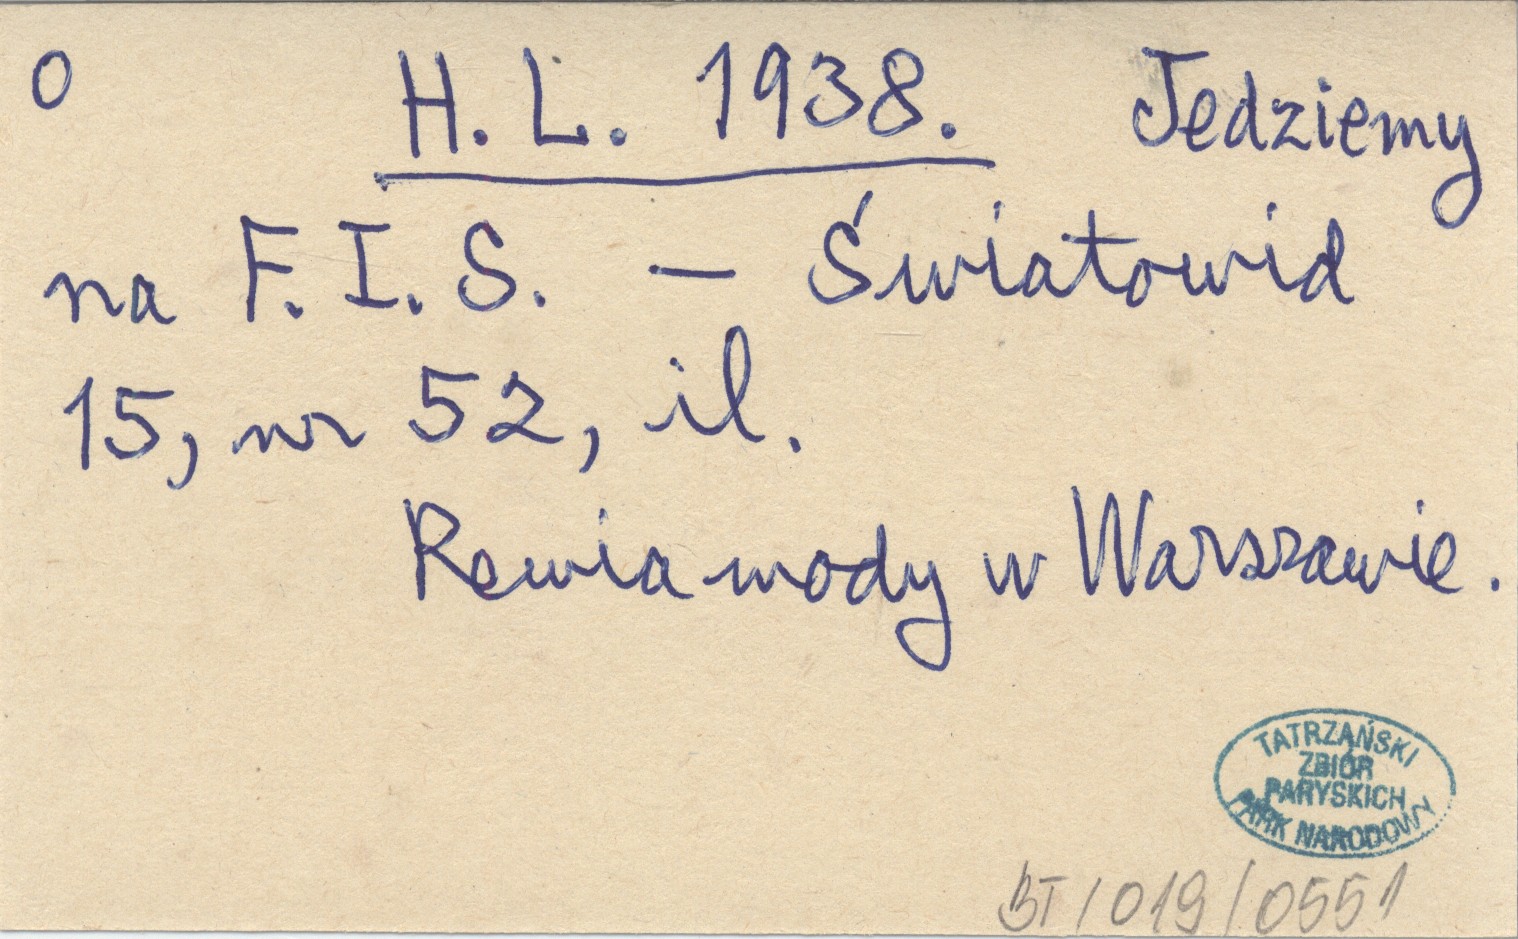 O H. L. 1938. Jedziemy
na F. I. S. – Światowid
15, nr 52, il.
Rewia mody w Warszawie.
TATRZAŃSKI
ZBIÓR
PARYSKICH
PARK NARODOWY
BT/019/0551